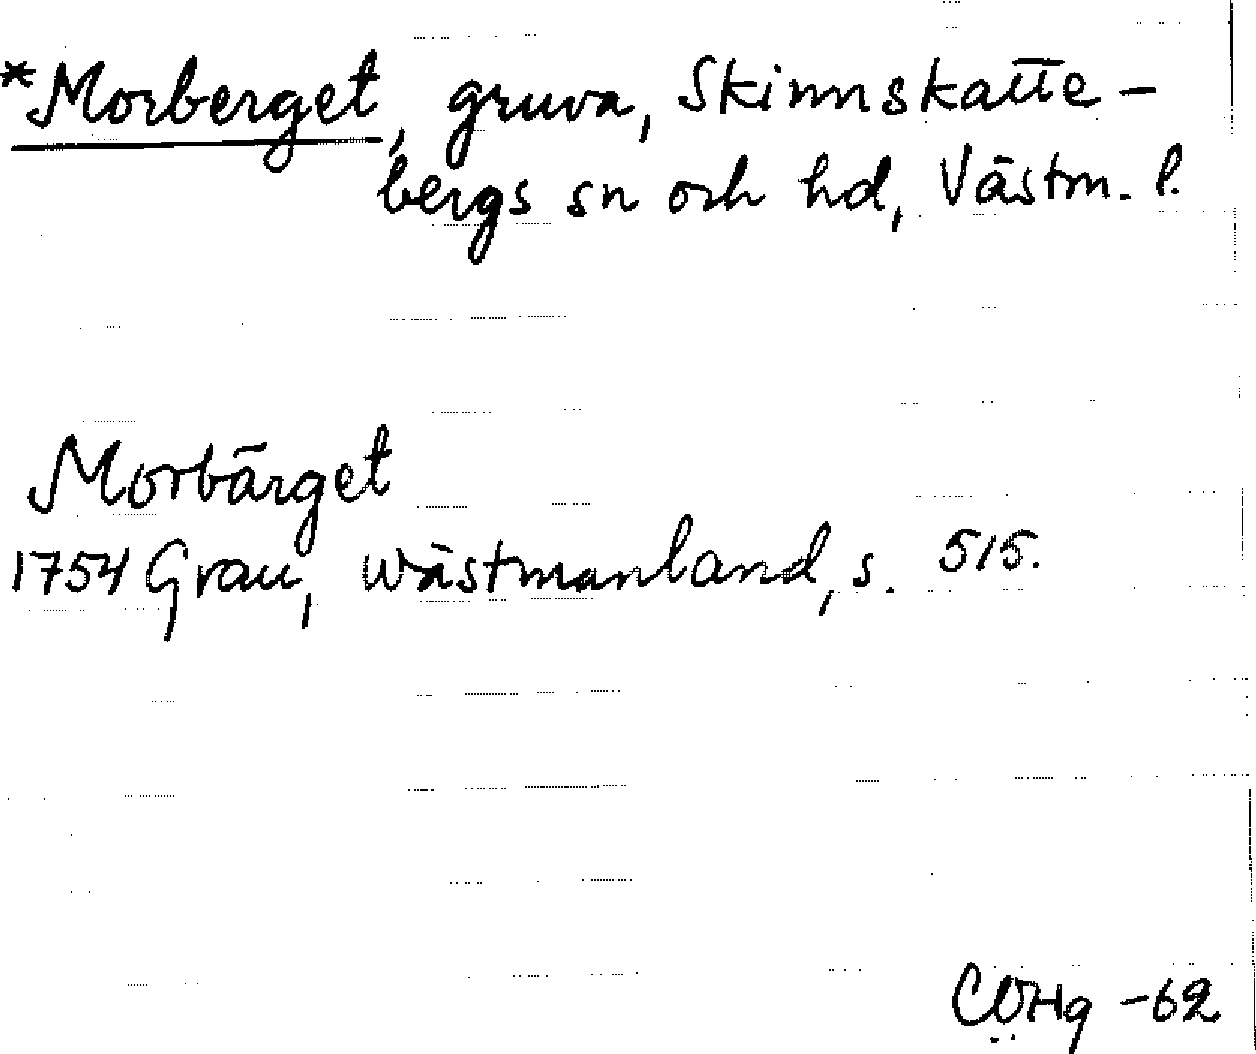 *Morberget, gruva, Skinnskatte-
bergs sn och hd, Västm. l.
Morbärget
1754 Grau, Wästmanland, s. 515.
-62